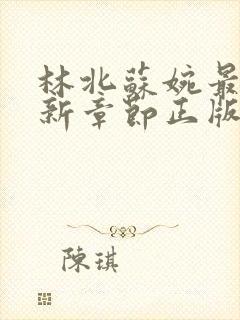 林北蘇婉最
新章節正版
陳琪